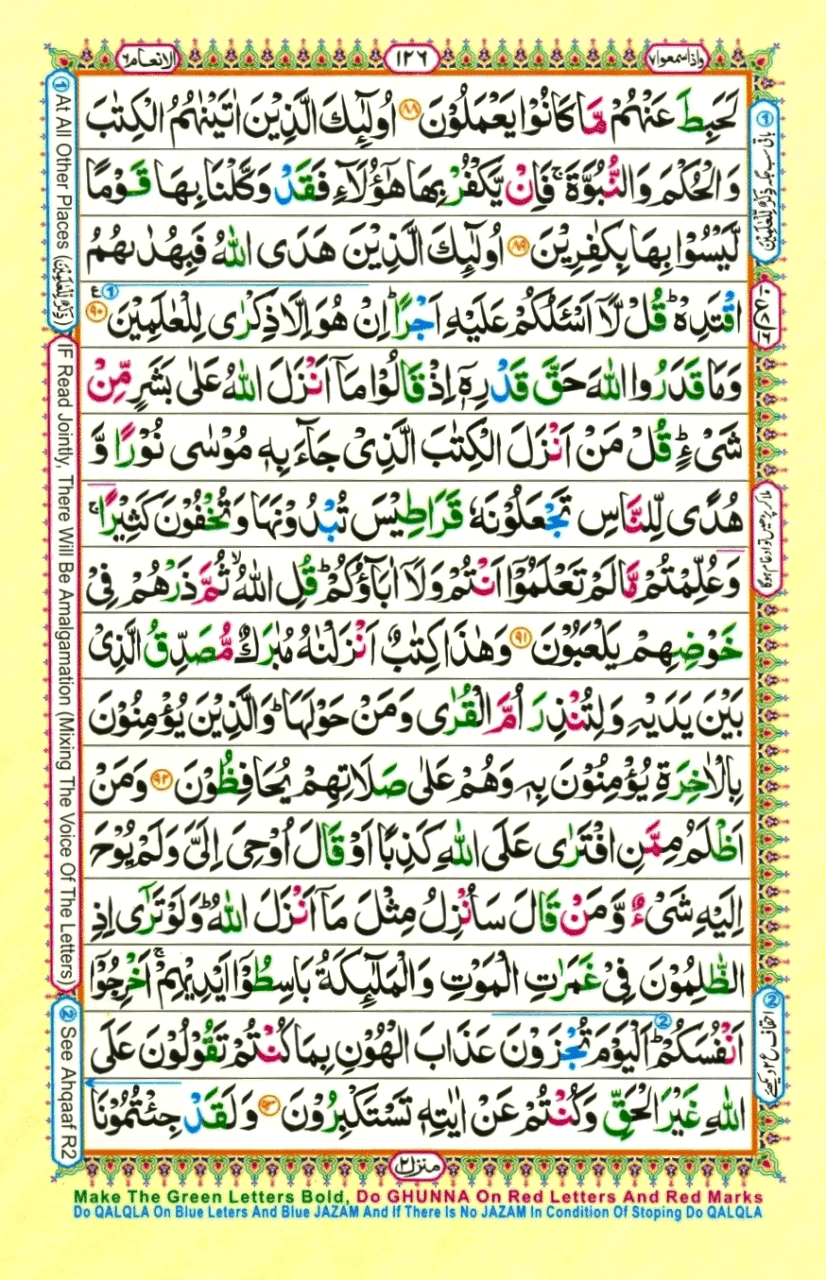 واذا سمعوا ٧
١٢٦
الانعام ٦
لَحَبِطَ عَنْهُمْ مَّا كَانُوْا يَعْمَلُوْنَ ﴿٨٨﴾ اُولٰٓئِكَ الَّذِيْنَ اٰتَيْنٰهُمُ الْكِتٰبَ
وَالْحُكْمَ وَالنُّبُوَّةَ ۚ فَاِنْ يَّكْفُرْ بِهَا هٰٓؤُلَآءِ فَقَدْ وَكَّلْنَا بِهَا قَوْمًا
لَّيْسُوْا بِهَا بِكٰفِرِيْنَ ﴿٨٩﴾ اُولٰٓئِكَ الَّذِيْنَ هَدَى اللّٰهُ فَبِهُدٰىهُمُ
اقْتَدِهْ ؕ قُلْ لَّاۤ اَسْـَٔلُكُمْ عَلَيْهِ اَجْرًا ؕ اِنْ هُوَ اِلَّا ذِكْرٰى لِلْعٰلَمِيْنَ ﴿٩٠﴾
وَمَا قَدَرُوا اللّٰهَ حَقَّ قَدْرِهٖۤ اِذْ قَالُوْا مَاۤ اَنْزَلَ اللّٰهُ عَلٰى بَشَرٍ مِّنْ
شَىْءٍ ؕ قُلْ مَنْ اَنْزَلَ الْكِتٰبَ الَّذِىْ جَآءَ بِهٖ مُوْسٰى نُوْرًا وَّ
هُدًى لِّلنَّاسِ تَجْعَلُوْنَهٗ قَرَاطِيْسَ تُبْدُوْنَهَا وَتُخْفُوْنَ كَثِيْرًا ۚ
وَعُلِّمْتُمْ مَّا لَمْ تَعْلَمُوْۤا اَنْتُمْ وَلَاۤ اٰبَآؤُكُمْ ؕ قُلِ اللّٰهُ ۙ ثُمَّ ذَرْهُمْ فِىْ
خَوْضِهِمْ يَلْعَبُوْنَ ﴿٩١﴾ وَهٰذَا كِتٰبٌ اَنْزَلْنٰهُ مُبٰرَكٌ مُّصَدِّقُ الَّذِىْ
بَيْنَ يَدَيْهِ وَلِتُنْذِرَ اُمَّ الْقُرٰى وَمَنْ حَوْلَهَا ؕ وَالَّذِيْنَ يُؤْمِنُوْنَ
بِالْاٰخِرَةِ يُؤْمِنُوْنَ بِهٖ وَهُمْ عَلٰى صَلَاتِهِمْ يُحَافِظُوْنَ ﴿٩٢﴾ وَمَنْ
اَظْلَمُ مِمَّنِ افْتَرٰى عَلَى اللّٰهِ كَذِبًا اَوْ قَالَ اُوْحِىَ اِلَىَّ وَلَمْ يُوْحَ
اِلَيْهِ شَىْءٌ وَّمَنْ قَالَ سَاُنْزِلُ مِثْلَ مَاۤ اَنْزَلَ اللّٰهُ ؕ وَلَوْ تَرٰٓى اِذِ
الظّٰلِمُوْنَ فِىْ غَمَرٰتِ الْمَوْتِ وَالْمَلٰٓئِكَةُ بَاسِطُوْۤا اَيْدِيْهِمْ ۚ اَخْرِجُوْۤا
اَنْفُسَكُمْ ؕ اَلْيَوْمَ تُجْزَوْنَ عَذَابَ الْهُوْنِ بِمَا كُنْتُمْ تَقُوْلُوْنَ عَلَى
اللّٰهِ غَيْرَ الْحَقِّ وَكُنْتُمْ عَنْ اٰيٰتِهٖ تَسْتَكْبِرُوْنَ ﴿٩٣﴾ وَلَقَدْ جِئْتُمُوْنَا
منزل ٢
① At All Other Places (ذِكْرٌ لِّلْعٰلَمِيْنَ)
IF Read Jointly, There Will Be Amalgamation (Mixing The Voice Of The Letters)
② See Ahqaaf R2
Make The Green Letters Bold, Do GHUNNA On Red Letters And Red Marks
Do QALQLA On Blue Leters And Blue JAZAM And If There Is No JAZAM In Condition Of Stoping Do QALQLA